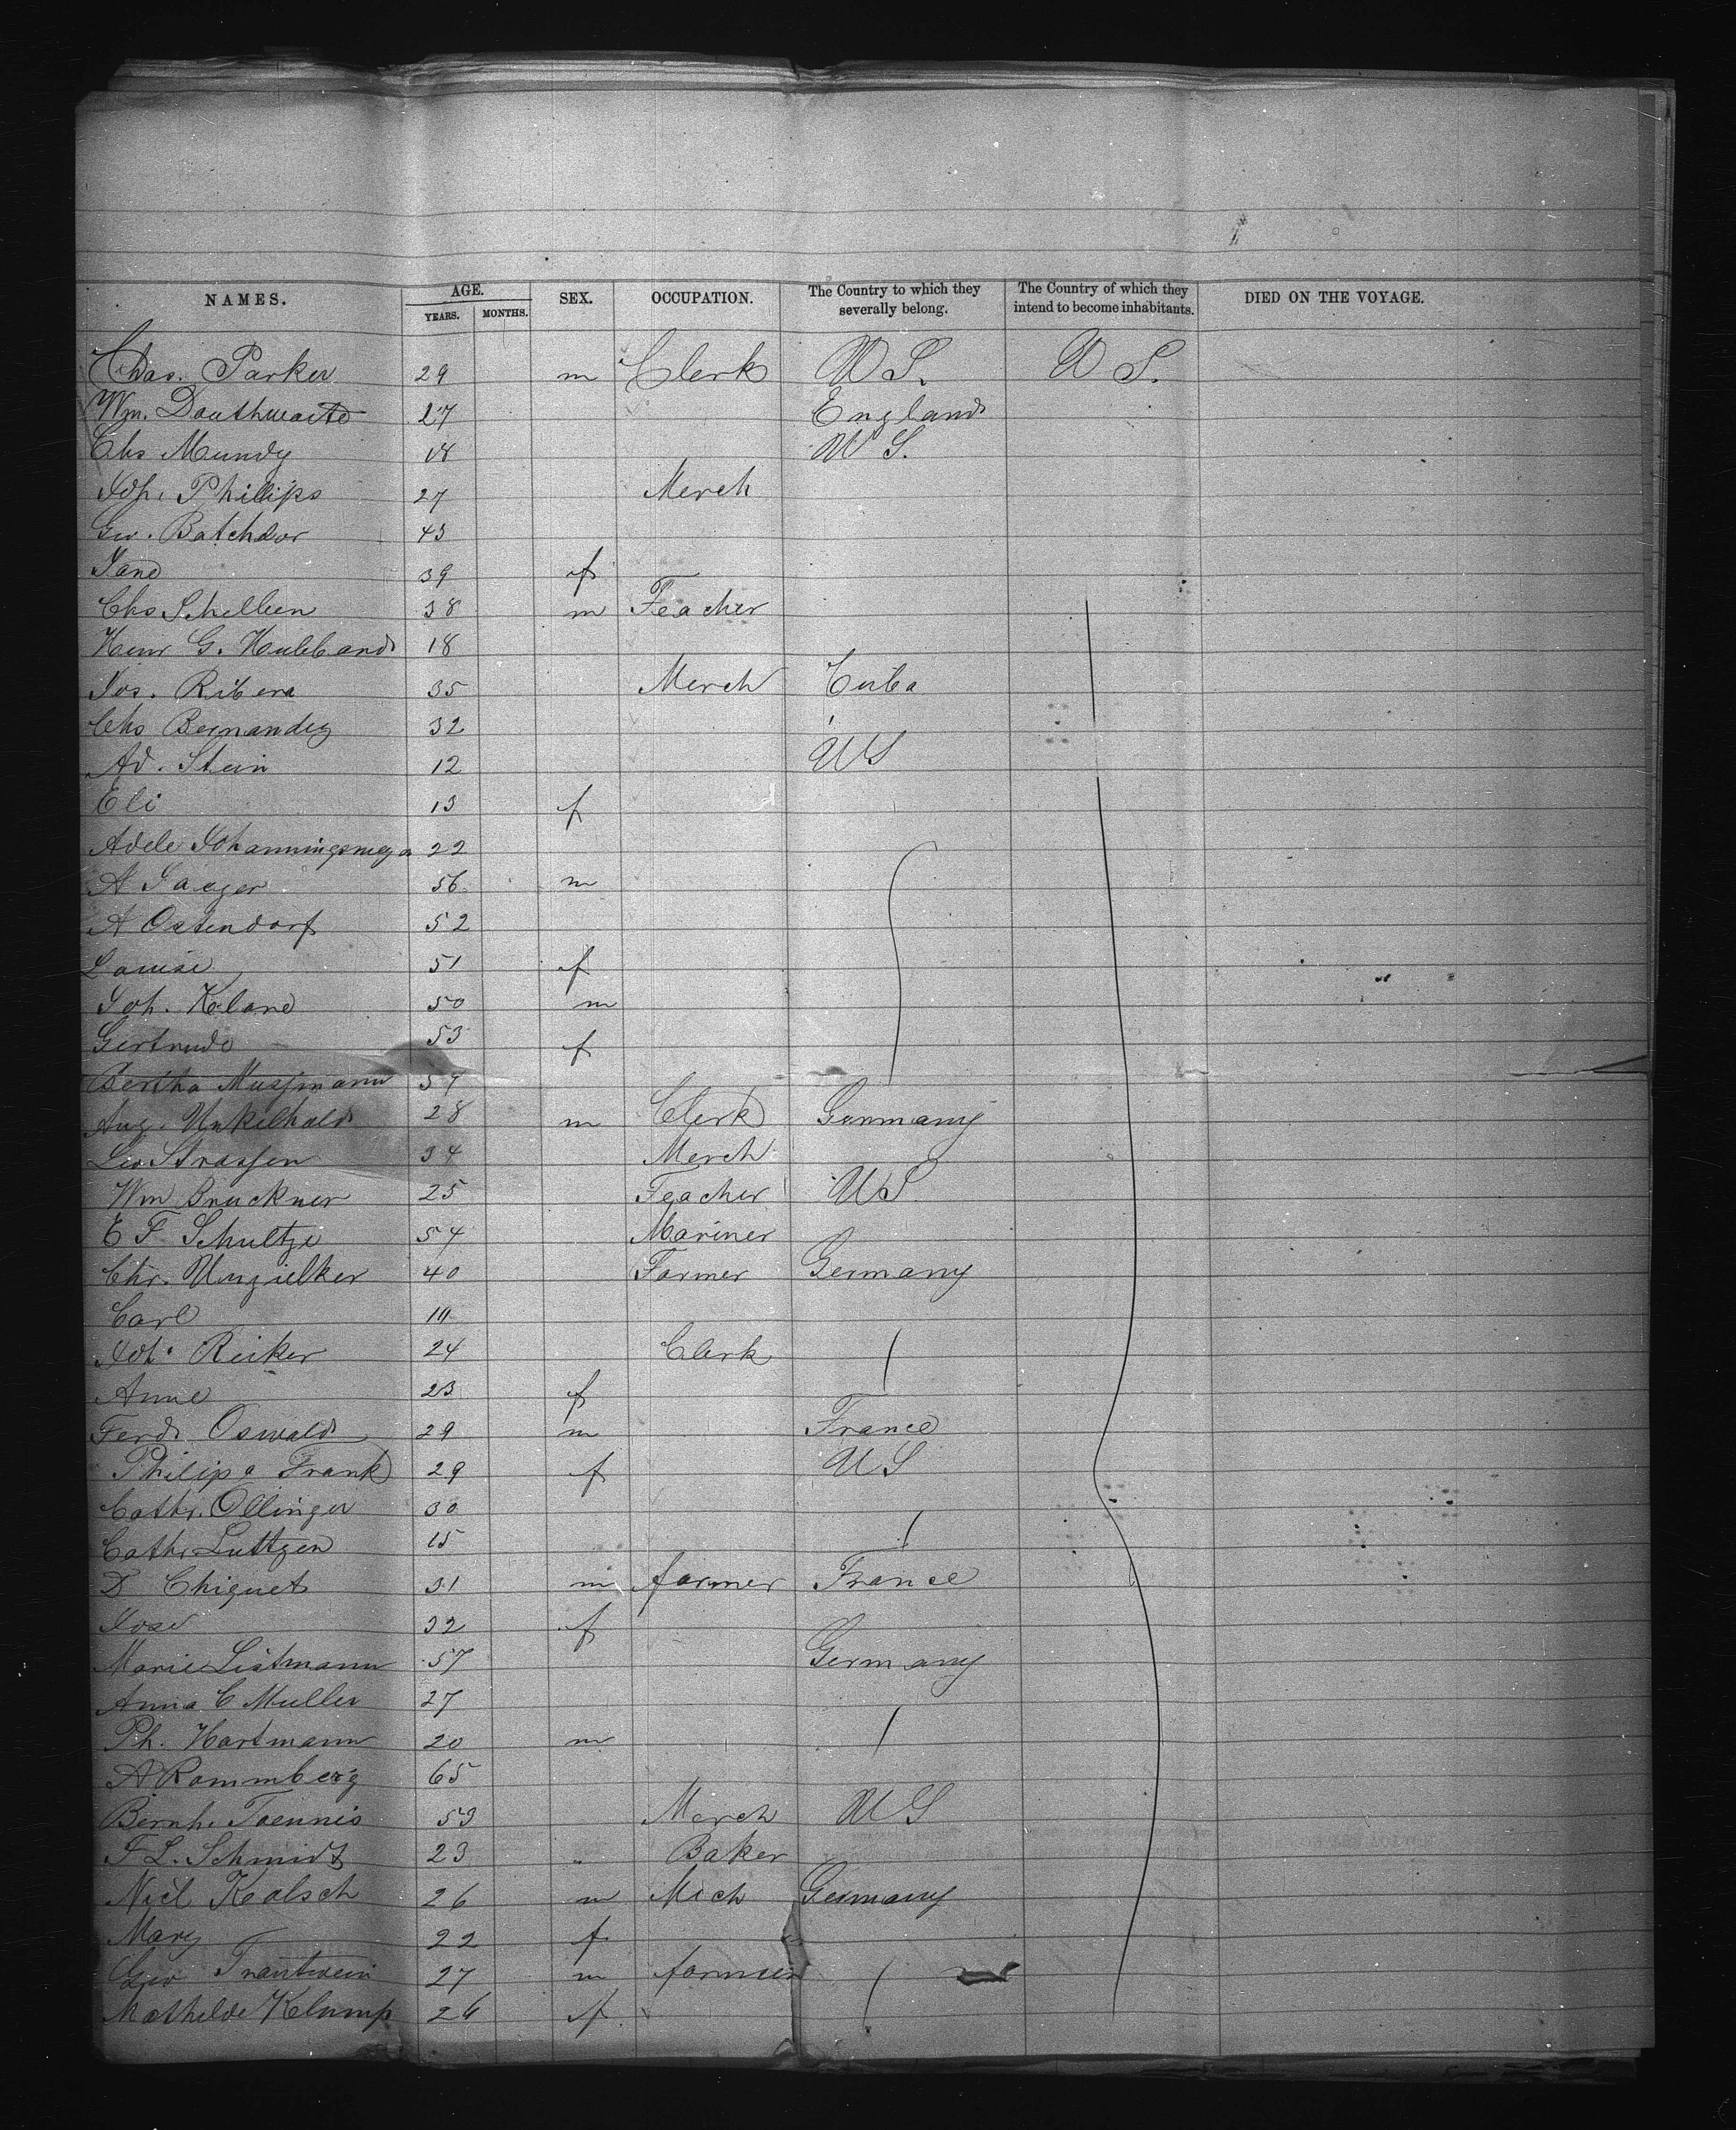 NAMES. AGE. SEX. OCCUPATION. The Country to which they severally belong. The Country of which they intend to become inhabitants. DIED ON THE VOYAGE.
YEARS. MONTHS.
Chas. Parker 29 m Clerk U S. U S.
Wm. Douthwaite 27 England
Chs Mundy 18 U S.
Joh. Phillips 27 Merch
Geo. Batchdor 43
Jane 39 f
Chs Schellien 38 m Teacher
Henr G. Hubband 18
Jos. Ribera 35 Merch Cuba
Chs Bernandez 32
Ad. Stein 12 US
Eli 13 f
Adele Johanningsmeyer 22
A Jaeger 56 m
A Ostendorf 52
Louise 51 f
Joh. Kland 50 m
Gertrude 53 f
Bertha Musfmann 39
Aug. Unkelhold 28 m Clerk Germany
Leo Strassen 34 Merch
Wm Bruckner 25 Teacher US
E F Schultze 54 Mariner
Chr. Ungielker 40 Farmer Germany
Carl
Joh. Reiker 24 Clerk
Anne 23 f
Ferd. Oswald 29 m France
Philipa Frank 29 f US
Cathr. Ollinger 30
Cathr Luttgen 15
D Chiquet 31 m farmer France
Jose 32 f
Marie Listmann 57 Germany
Anna C Muller 27
Ph. Hartmann 20 m
A Rommberg 65
Bernh. Toennis 53 Merch US
F L. Schmidt 23 " Baker
Nicl Kolsch 26 m Mich Germany
Mary 22 f
Geo Trantwein 27 m farmer
Mathilde Klump 26 f